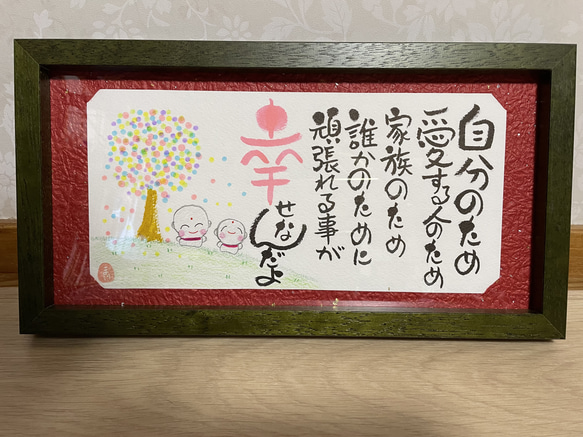 自分のため
愛する人のため
家族のため
誰かのために
頑張れる事が
幸
せなんだよ